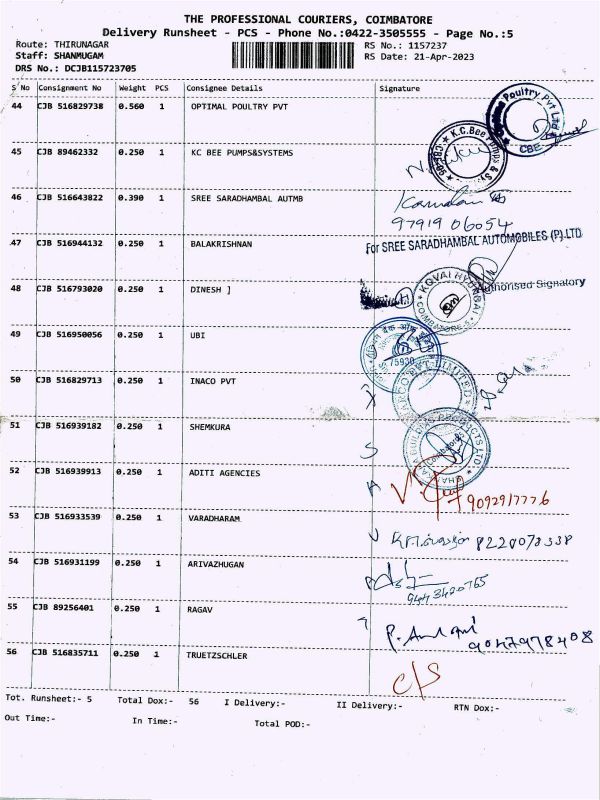 THE PROFESSIONAL COURIERS, COIMBATORE
Delivery Runsheet - PCS - Phone No.:0422-3505555 - Page No.:5
Route: THIRUNAGAR RS No.: 1157237
Staff: SHANMUGAM RS Date: 21-Apr-2023
DRS No.: DCJB115723705
S No Consignment No Weight PCS Consignee Details Signature
44 CJB 516829738 0.560 1 OPTIMAL POULTRY PVT
Poultry Pvt Ltd
CBE
45 CJB 89462332 0.250 1 KC BEE PUMPS&SYSTEMS
K.C.Bee Pumps &
46 CJB 516643822 0.390 1 SREE SARADHAMBAL AUTMB
97919 06054
47 CJB 516944132 0.250 1 BALAKRISHNAN
For SREE SARADHAMBAL AUTOMOBILES (P) LTD
48 CJB 516793020 0.250 1 DINESH ]
Authorised Signatory
KOVAI HYUNDAI
COIMBATORE
49 CJB 516950056 0.250 1 UBI
50 CJB 516829713 0.250 1 INACO PVT
LIMITED
51 CJB 516939182 0.250 1 SHEMKURA
BUILDING PRODUCTS LTD
Coimbatore
52 CJB 516939913 0.250 1 ADITI AGENCIES
9092917776
53 CJB 516933539 0.250 1 VARADHARAM
8220073338
54 CJB 516931199 0.250 1 ARIVAZHUGAN
55 CJB 89256401 0.250 1 RAGAV
9047978408
56 CJB 516835711 0.250 1 TRUETZSCHLER
C/S
Tot. Runsheet:- 5 Total Dox:- 56 I Delivery:- II Delivery:- RTN Dox:-
Out Time:- In Time:- Total POD:-